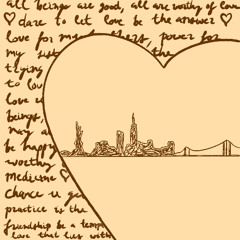 all beings are good, all are worthy of love
♡ dare to let love be the answer ♡
love for my brothers, power for
my sist the
trying
to lov
love i
beings,
may a
be happy
worthy
medicine ♡
chance u ge
practice is the
friendship be a temp
love that lies with